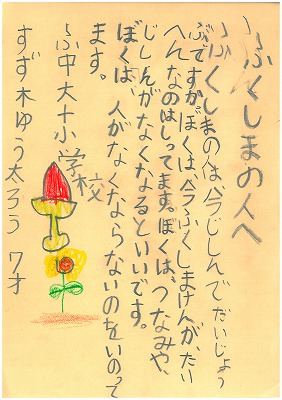 ふくしまの人へ
ふくしまの人は今じしんでだいじょう
ぶですか。ぼくは、今ふくしまけんが、たい
へんなのはしってます。ぼくは、つなみや、
じしんがなくなるといいです。
ぼくは、人がなくならないのをいのって
ます。
ふ中大十小学校
すず木ゆう太ろう 7才